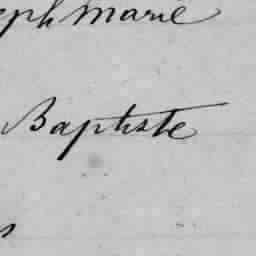 eph Marie
Baptiste
s